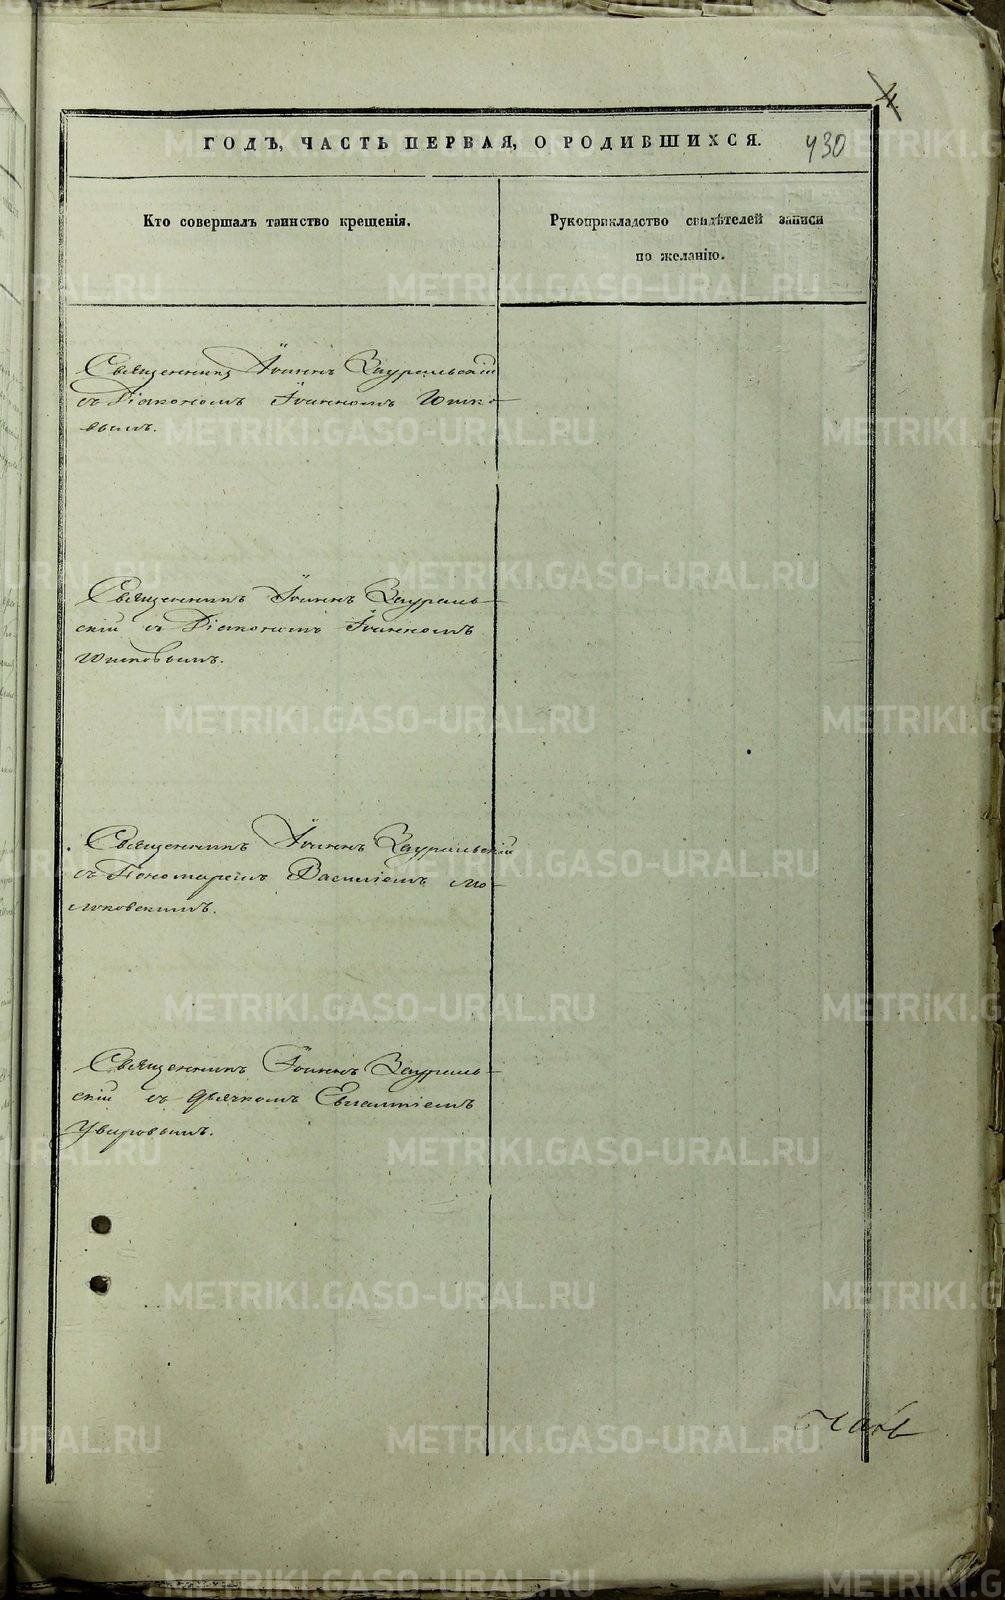 4.
ГОДЪ, ЧАСТЬ ПЕРВАЯ, О РОДИВШИХСЯ.
430
Кто совершалъ таинство крещенія.
Рукоприкладство свидѣтелей записи
по желанію.
Священникъ Іоаннъ Зауральскій
съ Діакономъ Іоанномъ
Священникъ Іоаннъ Зураль-
скій съ Діакономъ Іоанномъ
Священникъ Іоаннъ Зауральскій
съ Пономаремъ Василіемъ
Священникъ Іоаннъ Заураль-
скій съ дьячкомъ
Уваровымъ.
METRIKI.GASO-URAL.RU